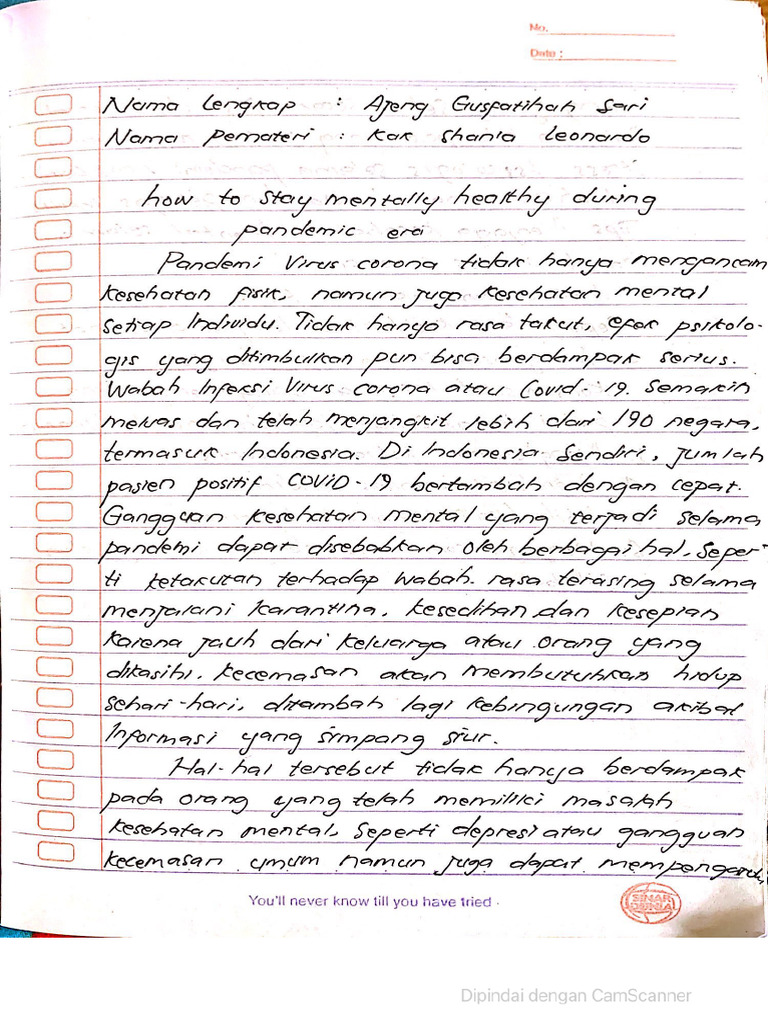 No.
Date :
Nama Lengkap : Ajeng Gusfatihah Sari
Nama Pemateri : Kak Shania Leonardo
how to stay mentally healthy during
pandemic era
Pandemi Virus corona tidak hanya mengancam
kesehatan fisik, namun juga kesehatan mental
setiap Individu. Tidak hanya rasa takut, efek psikolo-
gis yang ditimbulkan pun bisa berdampak serius.
Wabah Infeksi Virus corona atau Covid-19. Semakin
meluas dan telah menjangkit lebih dari 190 negara,
termasuk Indonesia. Di Indonesia Sendiri, Jumlah
pasien positif COViD-19 bertambah dengan cepat.
Gangguan kesehatan mental yang terjadi selama
pandemi dapat disebabkan oleh berbagai hal, Seper-
ti ketakutan terhadap wabah. rasa terasing selama
menjalani karantina, kesedihan dan kesepian
karena jauh dari keluarga atau orang yang
dikasihi, kecemasan akan membutuhkan hidup
sehari-hari, ditambah lagi kebingungan akibat
Informasi yang simpang siur.
Hal-hal tersebut tidak hanya berdampak
pada orang yang telah memiliki masalah
kesehatan mental, Seperti depresi atau gangguan
kecemasan umum namun juga dapat mempengaruhi
You'll never know till you have tried.
SINAR
DUNIA
Dipindai dengan CamScanner